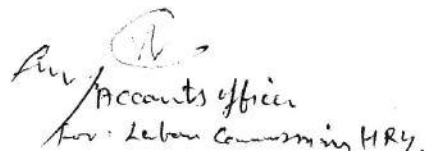 Accounts officer
for: Labour Commissioner HRY.